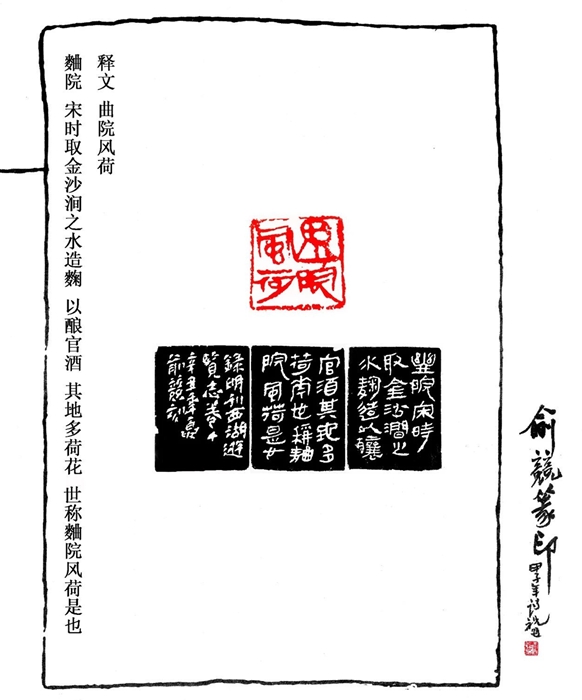 释文 曲院风荷
麯院 宋时取金沙涧之水造麴 以酿官酒 其地多荷花 世称麯院风荷是也
曲院
風荷
院宋時
取金沙澗之
水麴造以釀
官酒其地多
荷 世稱麯
院風荷是也
錄明刊西湖遊
覽志卷十
辛丑季
俞兢
俞兢篆印
甲子年